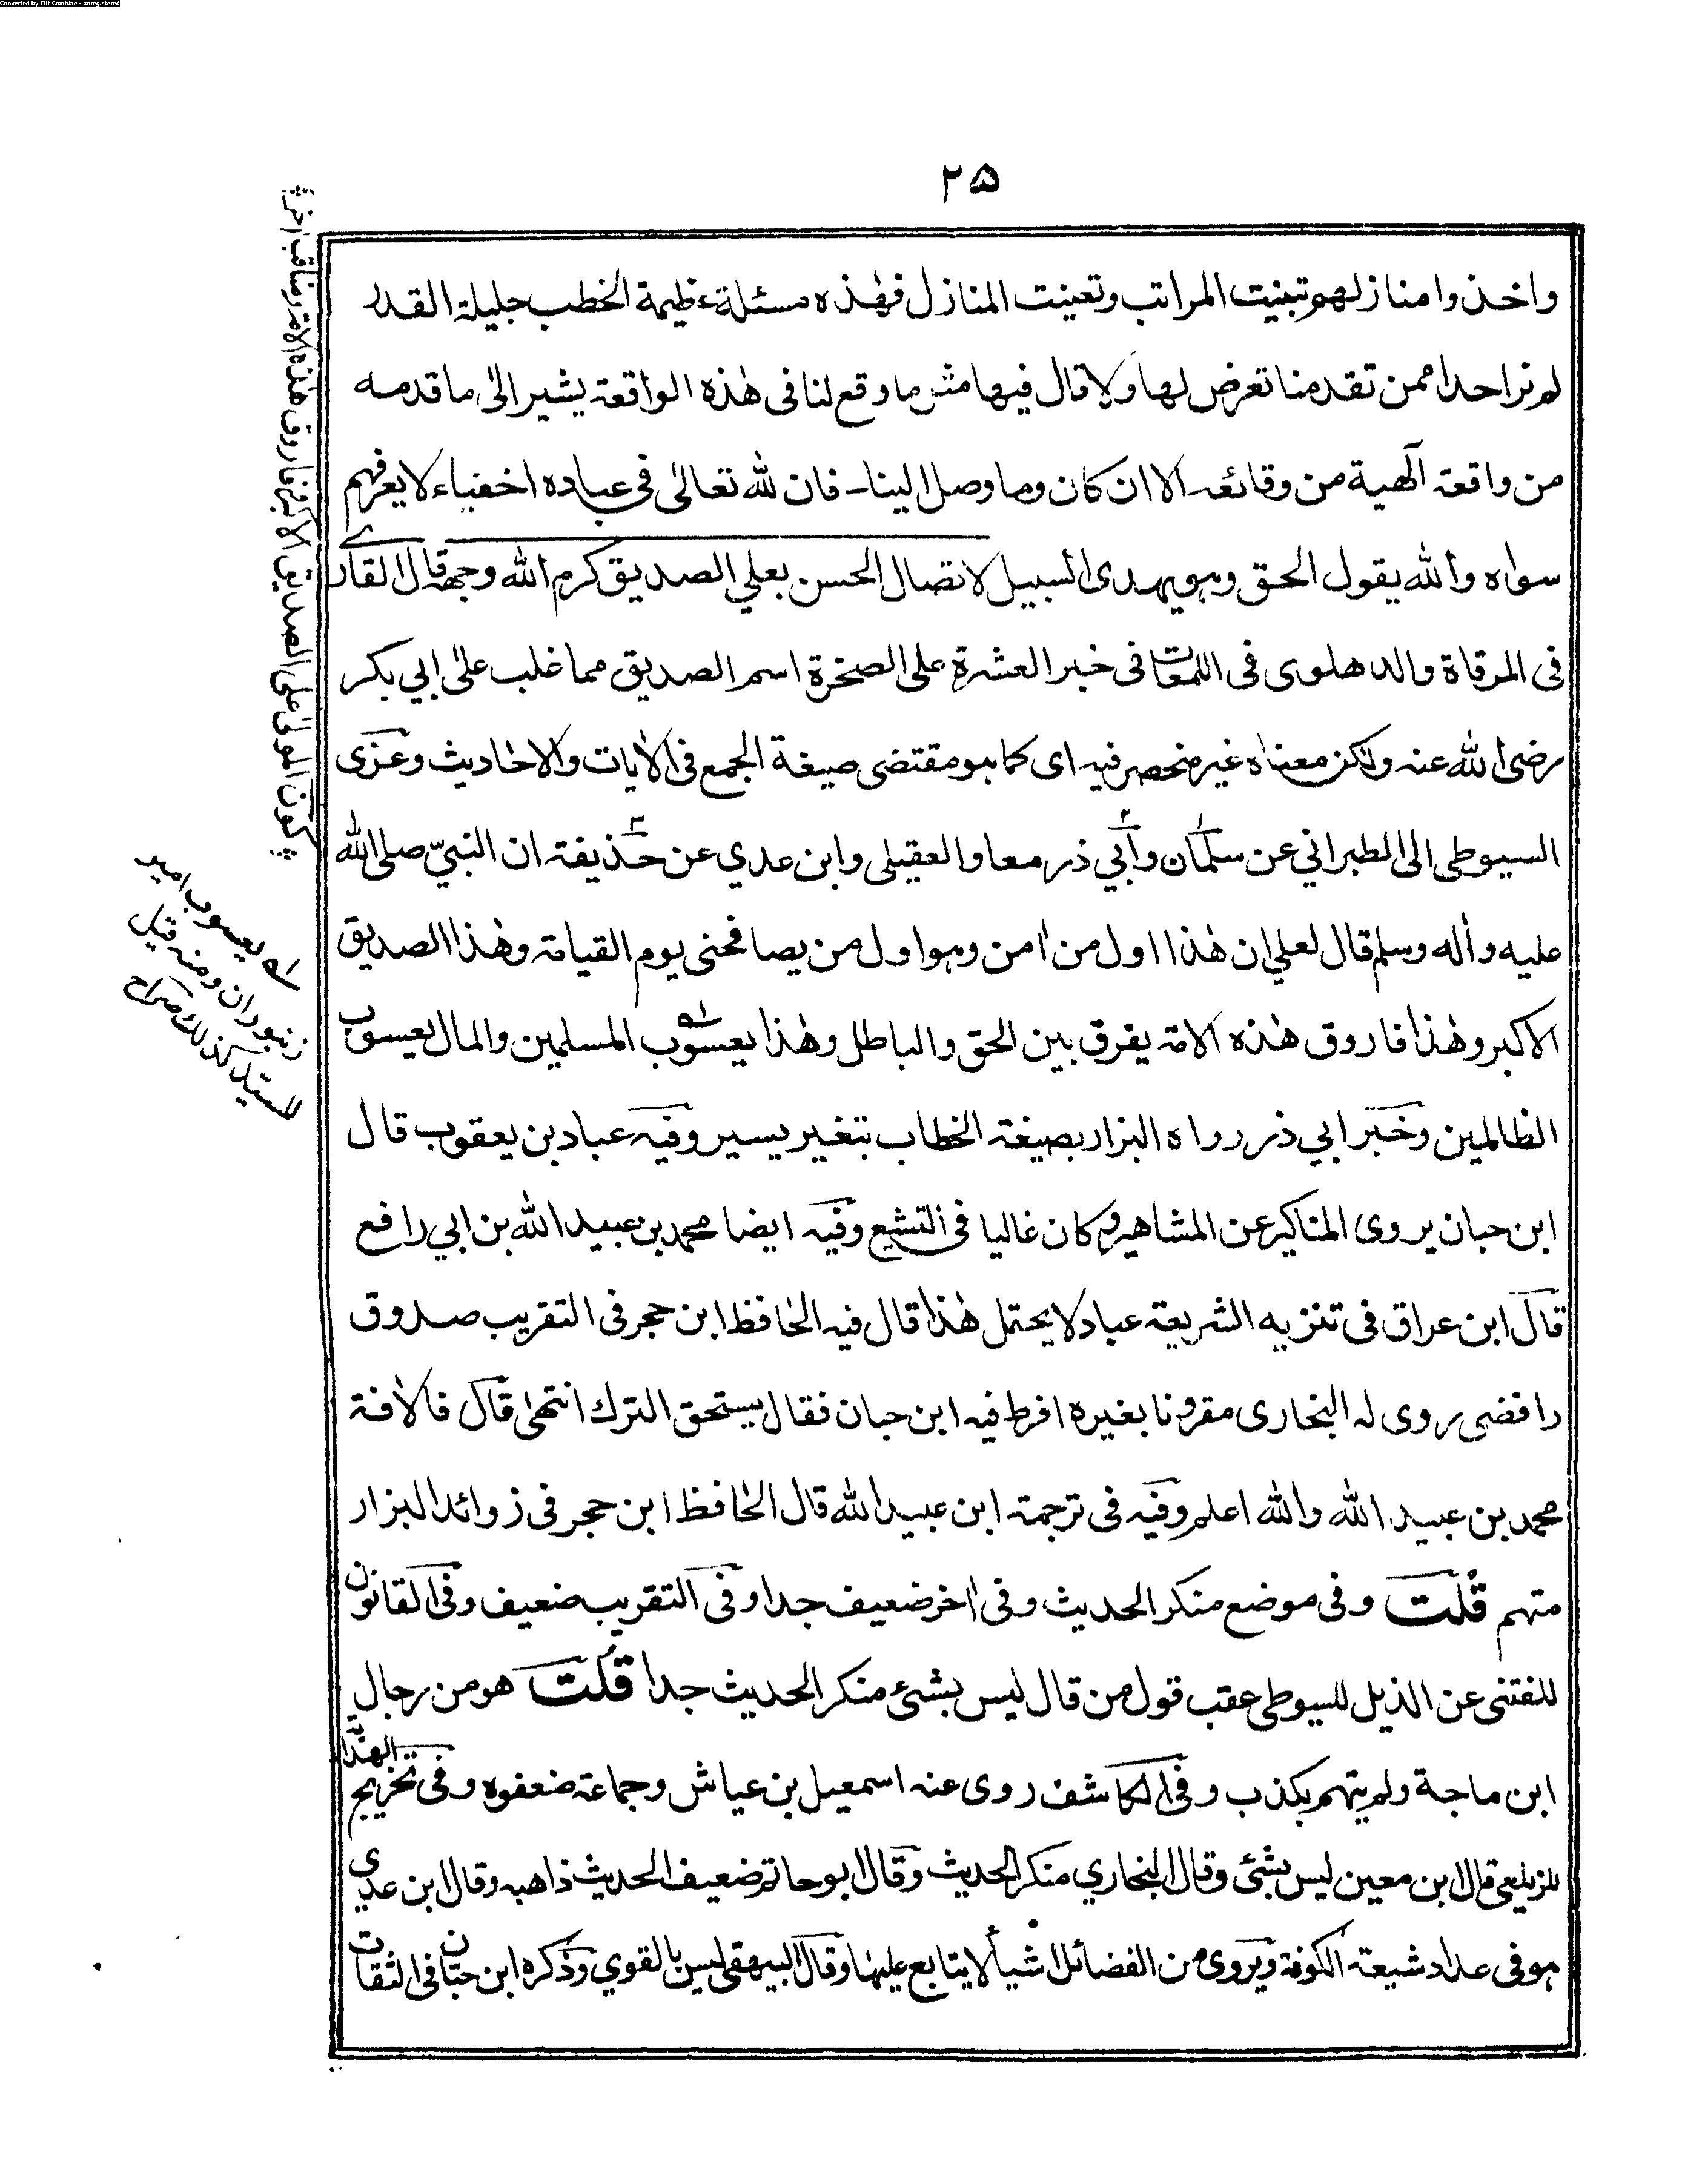 Converted by Tiff Combine - unregistered
۲۵
واخذوا منازلهم تبينت المراتب وتعينت المنازل فهٰذه مسئلة عظيمة الخطب جليلة القدر
لم نراحدا ممن تقدمنا تعرض لها ولا قال فيها مثل ما وقع لنا فى هٰذه الواقعة يشير الىٰ ما قدمه
من واقعة آلهية من وقائعه الا ان كان وما وصل الينا۔ فان لله تعالىٰ فى عباده اخفياء لا يعرفهم
سواه والله يقول الحق وهو يهدى السبيل لاتصال الحسن بعلي الصديق كرم الله وجهه قال القارى
فى المرقاة والدهلوى فى اللمعات فى خبر العشرة على الصخرة اسم الصديق مما غلب علىٰ ابي بكر
رضى الله عنه ولٰكن معناه غير منحصر فيه اى كما هو مقتضى صيغة الجمع فى الاٰيات والاحاديث وعزى
السيوطى الى الطبراني عن سلمان وأبي ذر معا والعقيلى وابن عدي عن حذيفة ان النبيّ صلى الله
عليه واٰله وسلم قال لعلي ان هٰذا اول من اٰمن وهو اول من يصافحنى يوم القيامة وهٰذا الصديق
الاكبر وهٰذا فاروق هٰذه الامة يفرق بين الحق والباطل وهٰذا يعسوب المسلمين والمال يعسوب
الظالمين وخبر ابي ذر رواه البزار بصيغة الخطاب بتغير يسير وفيه عباد بن يعقوب قال
ابن حبان يروى المناكير عن المشاهير وكان غاليا فى التشيع وفيه ايضا محمد بن عبيد الله بن ابي رافع
قال ابن عراق فى تنزيه الشريعة عباد لا يحتمل هٰذا قال فيه الحافظ ابن حجر فى التقريب صدوق
رافضى روى له البخارى مقرونا بغيره افرط فيه ابن حبان فقال يستحق الترك انتهىٰ قال فالاٰفة
محمد بن عبيد الله والله اعلم وفيه فى ترجمة ابن عبيد الله قال الحافظ ابن حجر فى زوائد البزار
متهم قلت وفى موضع منكر الحديث وفى اٰخر ضعيف جدا وفى التقريب ضعيف وفى القانون
للفتنى عن الذيل للسيوطى عقب قول من قال ليس بشئ منكر الحديث جدا قلت هو من رجال
ابن ماجة ولم يتهم بكذب وفى الكاشف روى عنه اسمعيل بن عياش وجماعة ضعفوه وفى تخريج الهداية
للزيلعى قال ابن معين ليس بشئ وقال البخاري منكر الحديث وقال ابو حاتم ضعيف الحديث ذاهبه وقال ابن عدي
هو فى عداد شيعة الكوفة ويروى من الفضائل اشياء لا يتابع عليها وقال البيهقى ليس بالقوي وذكره ابن حبان فى الثقات
كون المولىٰ على الصديق الاكبر فاروق هٰذه الامة ومناقب اخرىٰ
له يعسوب امير
زنبوران ومنه قيل
للسيد كذلك صراح